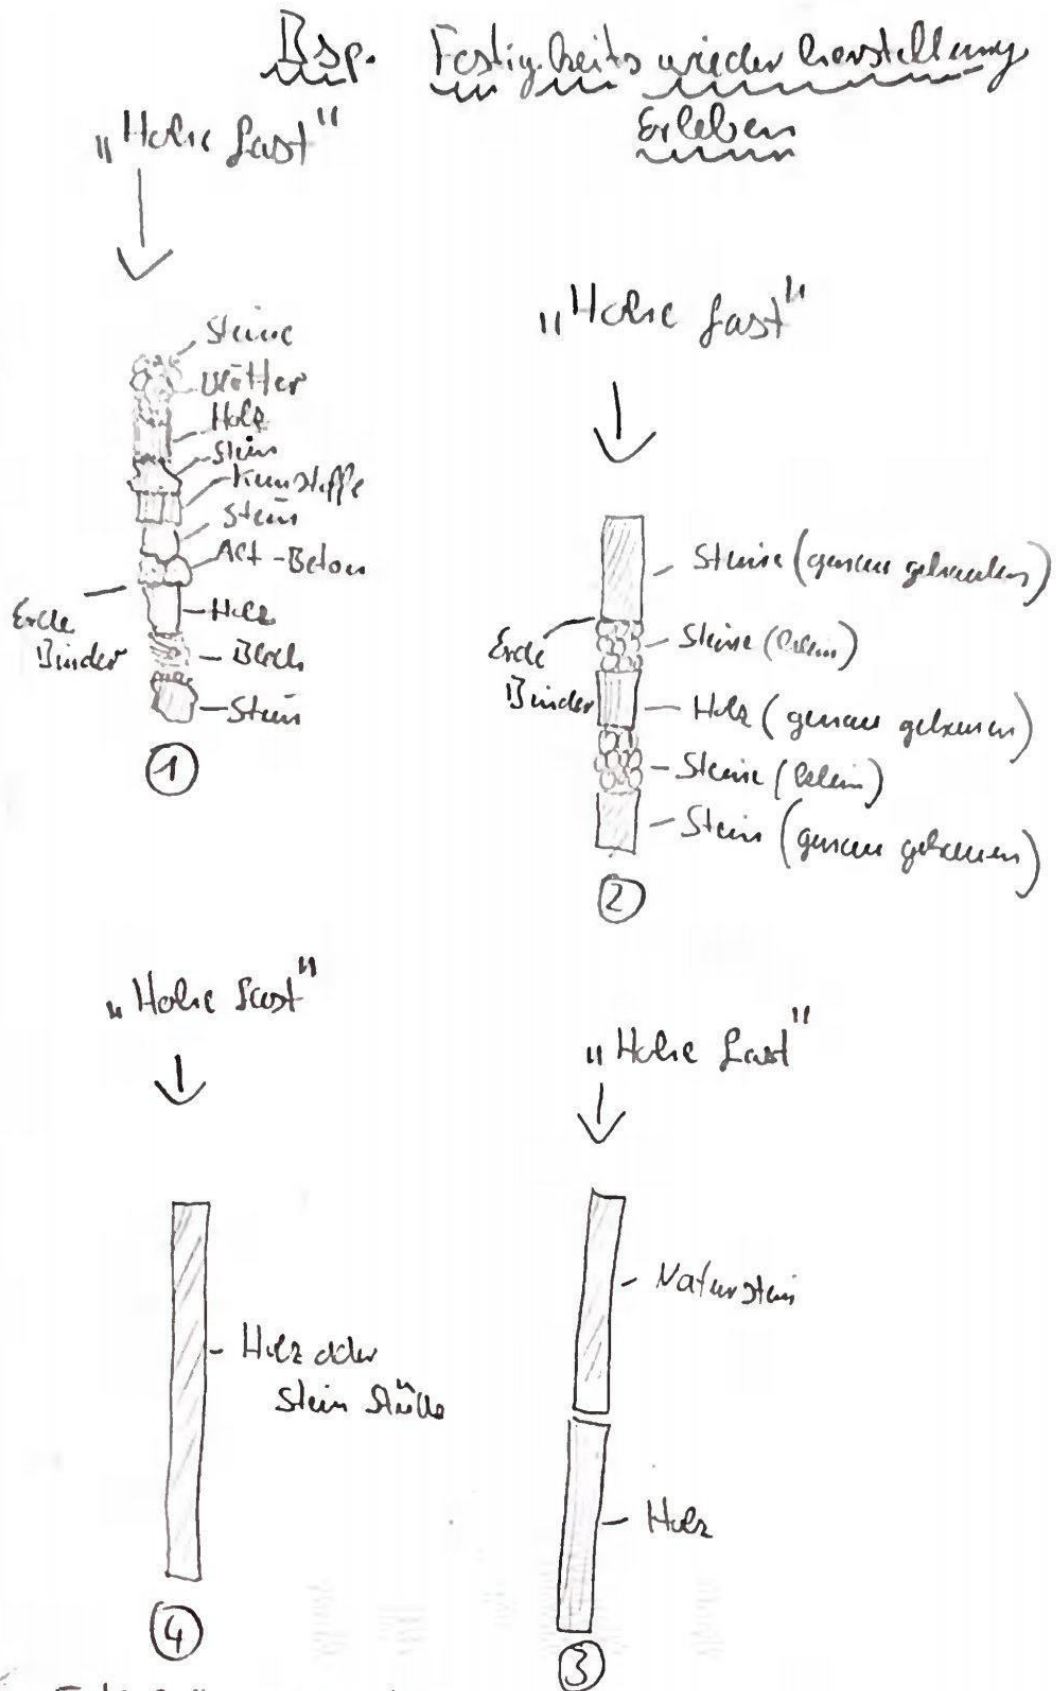 Bsp. Festigkeitswiederherstellung
Erleben
„Hohe Last"
Steine
Blätter
Holz
Stein
Kunstoffe
Stein
Alt-Beton
Erde
Binder
Holz
Blech
Stein
①
„Hohe Last"
Steine (genau gehauen)
Steine (klein)
Erde
Binder
Holz (genau gehauen)
Steine (klein)
Stein (genau gehauen)
②
„Hohe Last"
Holz oder
Stein
④
„Hohe Last"
Naturstein
Holz
③